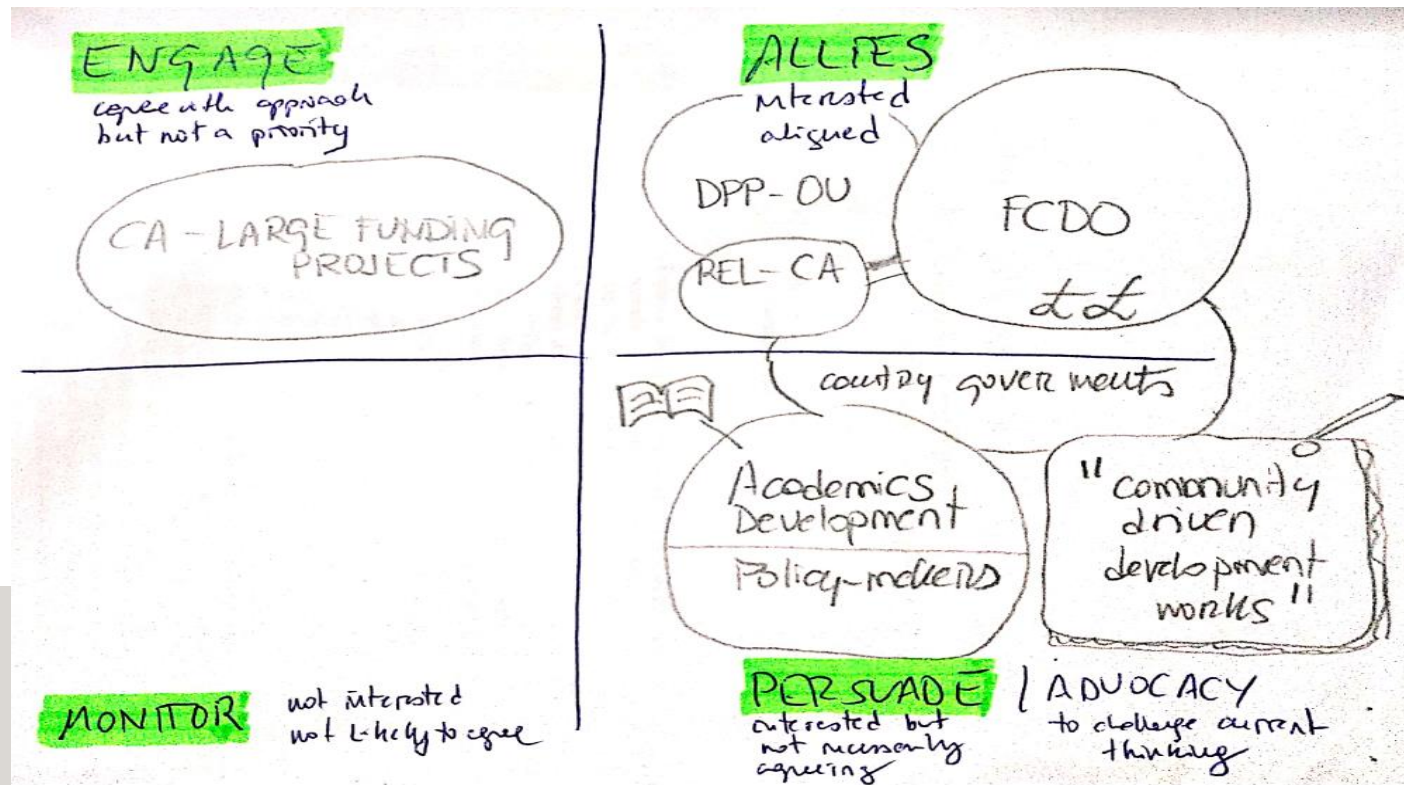 ENGAGE
agree with approach
but not a priority
CA - LARGE FUNDING
PROJECTS
ALLIES
interested
aligned
DPP-OU
REL-CA
FCDO
££
country governments
Academics
Development
Policy-makers
"community
driven
development
works"
MONITOR
not interested
not likely to agree
PERSUADE / ADVOCACY
interested but
not necessarily
agreeing
to challenge current
thinking